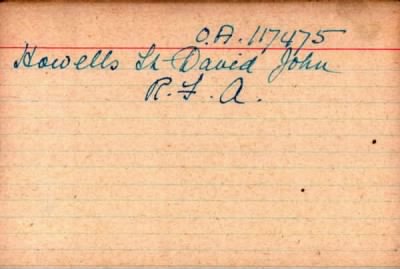 O.A. 117475
Howells Lt David John
R. F. A.